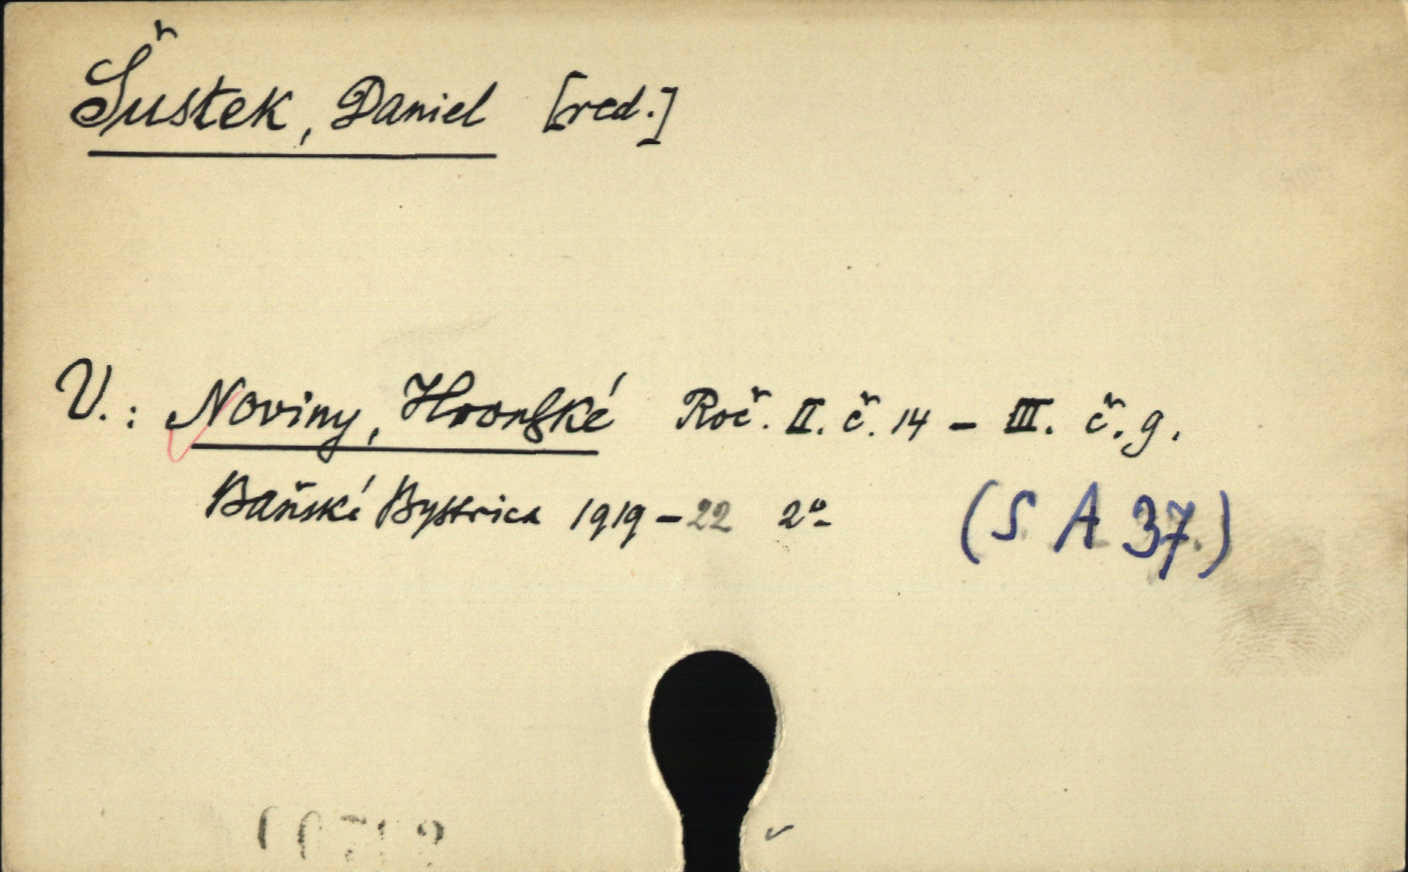 Šustek, Daniel [red.]
V.: Noviny, Hronské Roč. II. č. 14 – III. č. 9.
Baňské Bystrica 1919–22 2°
(S A 37)